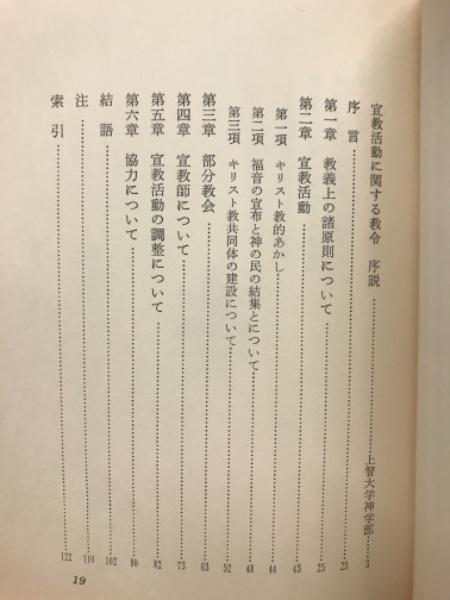 宣教活動に関する教令 序説……上智大学神学部…3
序言……23
第一章 教義上の諸原則について……25
第二章 宣教活動……43
第一項 キリスト教的あかし……44
第二項 福音の宣布と神の民の結集とについて……48
第三項 キリスト教共同体の建設について……52
第三章 部分教会……63
第四章 宣教師について……73
第五章 宣教活動の調整について……82
第六章 協力について……90
結語……102
注……110
索引……122
19